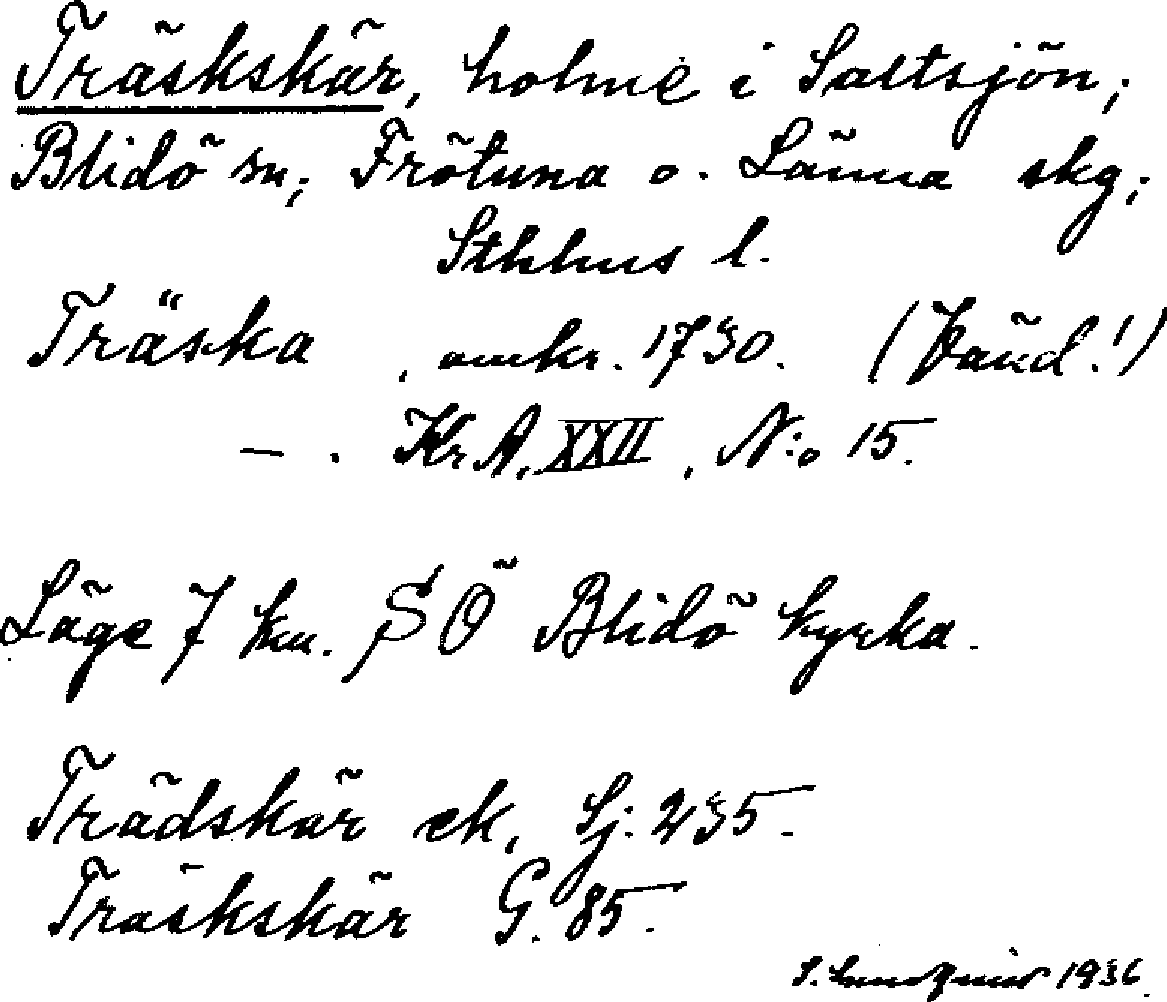 Träskskär, holme i Saltsjön;
Blidö sn; Frötuna o. Länna skg;
Sthlms l.
Träska, omkr. 1730. (Vänd!)
— . Kr A. XXII, N:o 15.
Läge 7 km. SÖ Blidö kyrka.
Trädskär ek, Sj: 235.
Träskskär G. 85.
S. 1936